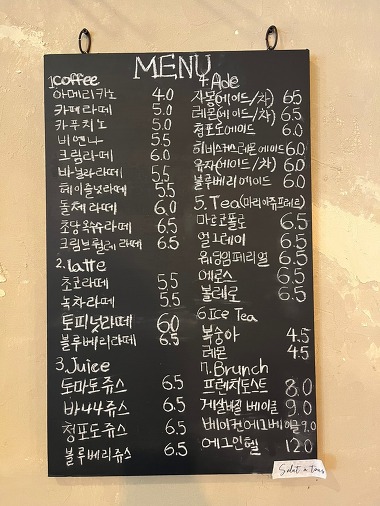 MENU
1.Coffee
아메리카노 4.0
카페라떼 5.0
카푸치노 5.0
비엔나 5.5
크림라떼 6.0
바닐라라떼 5.5
헤이즐넛라떼 5.5
돌체라떼 6.0
초당옥수수라떼 6.5
크림브륄레라떼 6.5
2.latte
초코라떼 5.5
녹차라떼 5.5
토피넛라떼 6.0
블루베리라떼 6.5
3.Juice
토마토쥬스 6.5
바나나쥬스 6.5
청포도쥬스 6.5
블루베리쥬스 6.5
4.Ade
자몽(에이드/차) 6.5
레몬(에이드/차) 6.5
청포도에이드 6.0
히비스커스레몬에이드 6.0
유자(에이드/차) 6.0
블루베리에이드 6.0
5.Tea(마리아쥬프레르)
마르코폴로 6.5
얼그레이 6.5
웨딩임페리얼 6.5
에로스 6.5
볼레로 6.5
6.Ice Tea
복숭아 4.5
레몬 4.5
7.Brunch
프렌치토스트 8.0
게살바질 베이글 9.0
베이컨에그베이글 9.0
에그인헬 12.0
Salut a tous